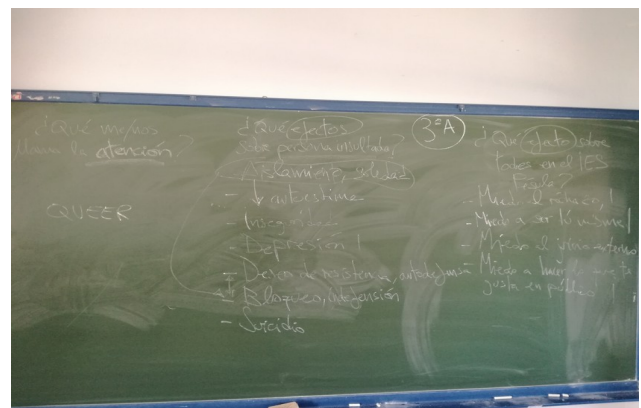 ¿Qué
llama la atención?
QUEER
¿Qué efectos
sobre persona insultada?
- Aislamiento, soledad
- ↓ autoestima
- Inseguridad
- Depresión!
- Deseo de resistencia, autodefensa
- Bloqueo, indefensión
- Suicidio
3ºA
¿Qué efecto sobre
todos en el IES
- Miedo al rechazo!
- Miedo a ser tú mismo!
- Miedo al
- Miedo a hacer lo que te
gusta en público!